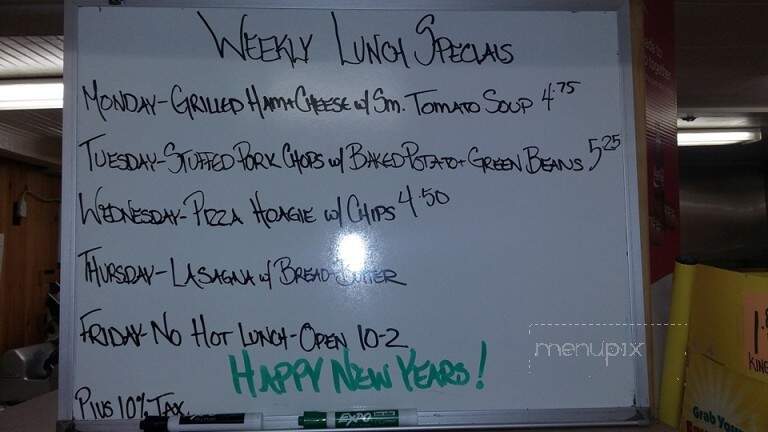 WEEKLY LUNCH SPECIALS
MONDAY-GRILLED HAM+CHEESE w/ SM. TOMATO SOUP 4.75
TUESDAY-STUFFED PORK CHOPS w/ BAKED POTATO+GREEN BEANS 5.25
WEDNESDAY-PIZZA HOAGIE w/ CHIPS 4.50
THURSDAY-LASAGNA w/ BREAD+BUTTER
FRIDAY-NO HOT LUNCH-OPEN 10-2
HAPPY NEW YEARS!
PLUS 10% TAX
EXPO
menupix
KING
Grab Your